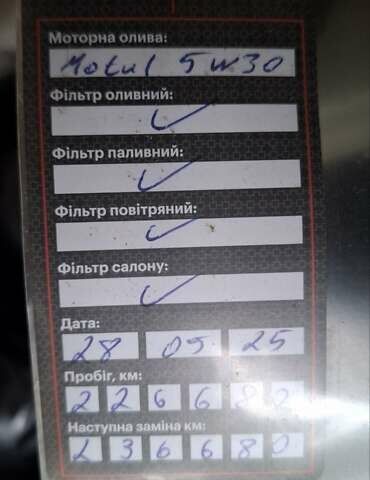 Моторна олива:
Motul 5w30
Фільтр оливний:
Фільтр паливний:
Фільтр повітряний:
Фільтр салону:
Дата:
28 05 25
Пробіг, км:
226680
Наступна заміна км:
236680